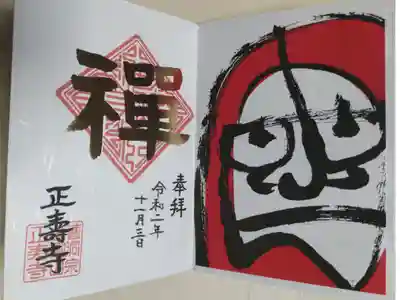 奉拝
令和二年
十一月三日
禅
正壽寺